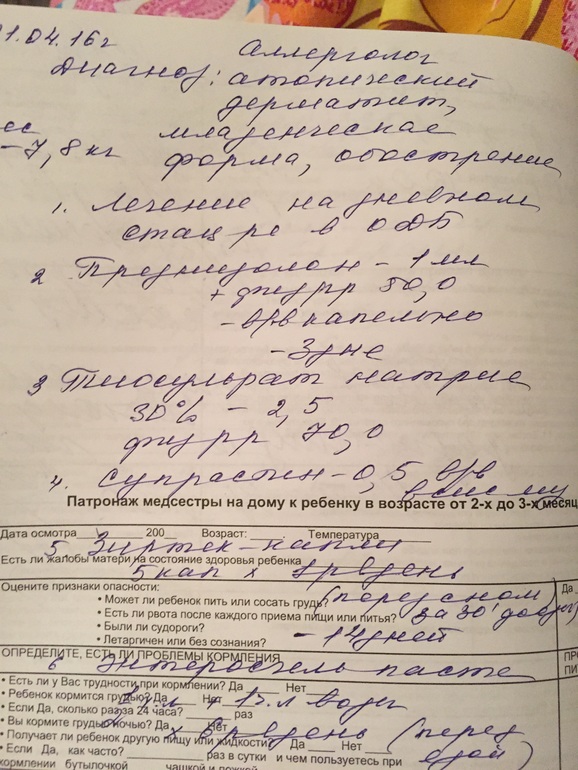 1.04.16г
Аллерголог
Диагноз: атопический
дерматит,
ес младенческая
-7,8кг форма, обострение
1. Лечение на дневном
стац ре в ОДБ
2 Преднизолон - 1 мл
+ физ рр 80,0
- в/в капельно
- 3 дне
3 Тиосульфат натрие
30% - 2,5
физ рр 70,0
4. Супрастин - 0,5 в/в
Патронаж медсестры на дому к ребенку в возрасте от 2-х до 3-х месяц
Дата осмотра 200_ Возраст: Температура
5 Зиртек - капли
Есть ли жалобы матери на состояние здоровья ребенка
5 кап х 1 р в день
Оцените признаки опасности: Да
• Может ли ребенок пить или сосать грудь? (перед сном
• Есть ли рвота после каждого приема пищи или питья? за 30'
• Были ли судороги?
• Летаргичен или без сознания? - 14 дней
ОПРЕДЕЛИТЕ, ЕСТЬ ЛИ ПРОБЛЕМЫ КОРМЛЕНИЯ
6 Энтеросгель паста
• Есть ли у Вас трудности при кормлении? Да Нет
• Ребенок кормится грудью? Да Нет воды
• Если Да, сколько раз за 24 часа? раз
• Вы кормите грудью ночью? Да Нет
р в день (перед
• Получает ли ребенок другую пищу или жидкости? Да Нет
едой)
• Если Да, как часто? раз в сутки и чем пользуетесь при
кормлении бутылочкой чашкой и ложкой